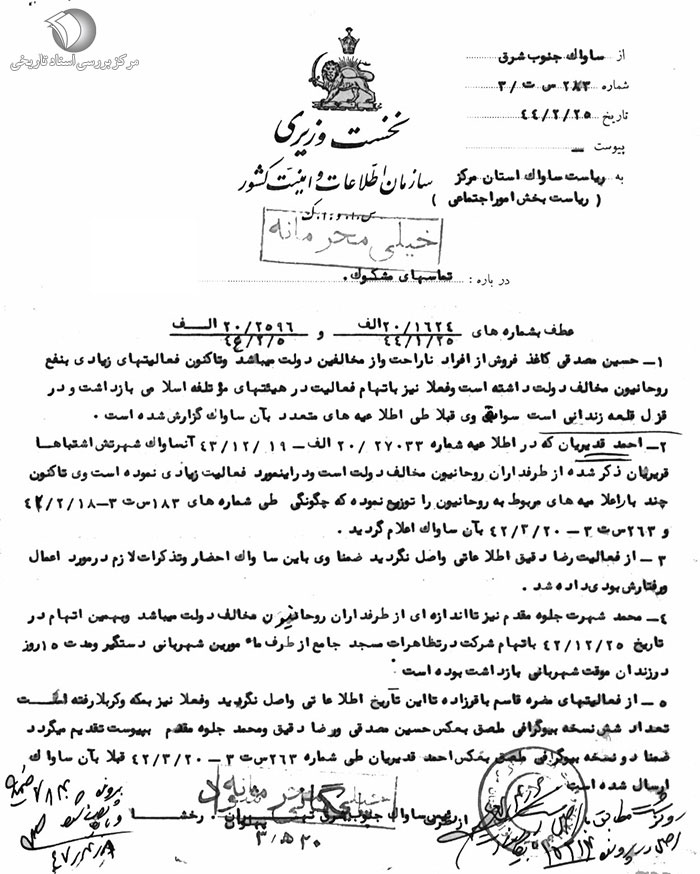 مرکز بررسی اسناد تاریخی
از ساواک جنوب شرق
شماره ۲۸۳ س ت /۳
تاریخ ۴۴/۲/۲۵
پیوست ــ
نخست وزیری
سازمان اطلاعات و امنیت کشور
س.ا.و.ا.ک
به ریاست ساواک استان مرکز
( ریاست بخش امور اجتماعی )
خیلی محرمانه
در باره : تماسهای مشکوک .
عطف بشماره های ۲۰/۱۶۲۴الف و ۲۰/۲۵۹۶ الــف
۴۴/۱/۲۵ ۴۴/۲/۵
۱ــ حسین مصدقی کاغذ فروش از افراد ناراحت واز مخالفین دولت میباشد وتاکنون فعالیتهای زیادی بنفع
روحانیون مخالف دولت داشته است وفعلا نیز باتهام فعالیت در هیئتهای مؤتلفه اسلامی بازداشت و در
قزل قلعه زندانی است سوابق وی قبلا طی اطلاعیه های متعدد بآن ساواک گزارش شده است .
۲ــ احمد قدیریان که در اطلاعیه شماره ۲۷۰۳۳ /۲۰ الف ــ ۱۹ /۴۳/۱۲ آنساواک شهرتش اشتباها
قریریان ذکر شده از طرفداران روحانیون مخالف دولت است ودراینمورد فعالیت زیادی نموده است وی تاکنون
چند باراعلامیه های مربوط به روحانیون را توزیع نموده که چگونگی طی شماره های ۱۸۳س ت ۳ــ ۴۲/۲/۱۸
و ۲۶۳س ت ۳ ــ ۴۲/۳/۲۰ بآن ساواک اعلام گردید .
۳ ــ از فعالیت رضا دقیق اطلاعاتی واصل نگردید ضمنا وی باین ساواک احضار وتذکرات لازم درمورد اعمال
ورفتارش بوی داده شد .
۴ــ محمد شهرت جلوه مقدم نیز تااندازه ای از طرفداران روحانیون مخالف دولت میباشد وبهمین اتهام در
تاریخ ۴۲/۱۲/۲۵ باتهام شرکت درتظاهرات مسجد جامع از طرف مأمورین شهربانی دستگیر ومدت ۱۵روز
درزندان موقت شهربانی بازداشت بوده است
۵ ــ از فعالیتهای مضره قاسم باقرزاده تااین تاریخ اطلاعاتی واصل نگردید وفعلا نیز بمکه وکربلا رفته است
تعداد شش نسخه بیوگرافی ملصق بعکس حسین مصدقی ورضا دقیق ومحمد جلوه مقدم بپیوست تقدیم میگردد
ضمنا دو نسخه بیوگرافی ملصق بعکس احمد قدیریان طی شماره ۲۶۳س ت ۳ ــ ۴۲/۳/۲۰ قبلا بآن ساواک
ارسال شده است
رئیس ساواک جنوب شرق
پرونده
رونوشت مطابق
اصل در پرونده